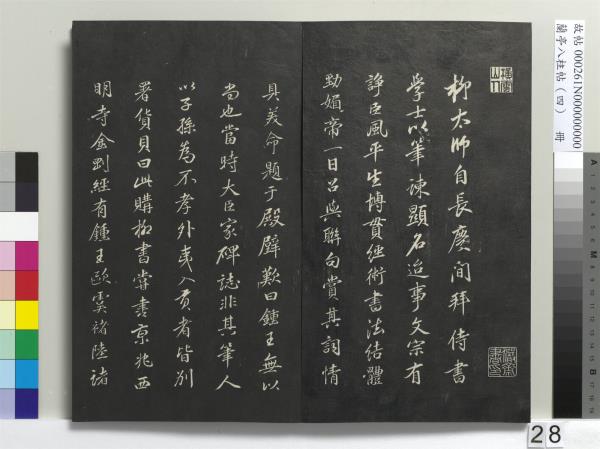 柳太師自長慶間拜侍書
學士以筆諫顯名迨事文宗有
諍臣風平生博貫經術書法結體
勁媚帝一日召與聯句賞其詞情
具美命題于殿壁歎曰鍾王無以
尚也當時大臣家碑誌非其筆人
以子孫為不孝外夷入貢者皆別
署貨貝曰此購柳書嘗書京兆西
明寺金剛經有鍾王歐虞褚陸諸
故帖 000261N000000000
蘭亭八柱帖（四） 冊
28